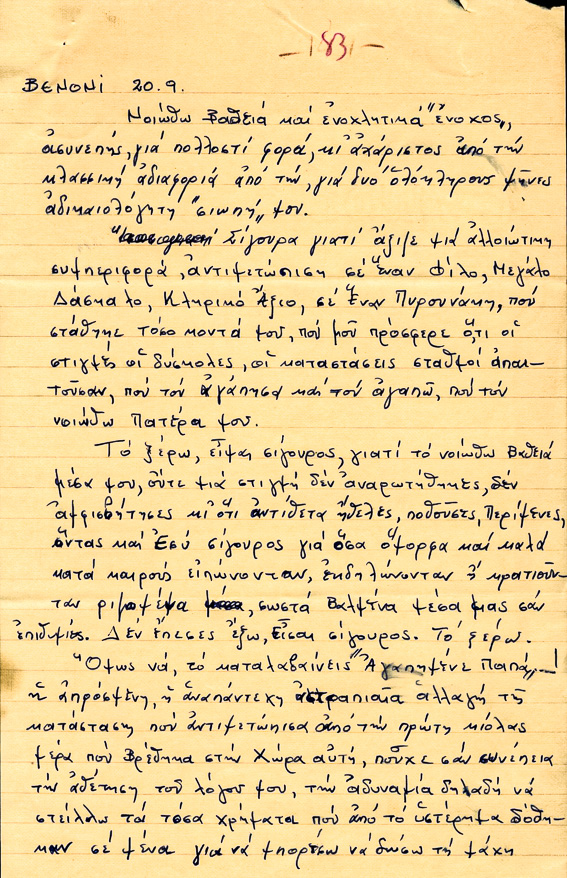 - 83 -
ΒΕΝΟΝΙ 20.9.
Νοιώθω βαθειά καί ἐνοχλητικά "ἔνοχος",
ἀσυνεπής, γιά πολλοστί φορά, κι ἀχάριστος ἀπό τήν
κλασσική ἀδιαφοριά ἀπό τήν, γιά δυό ὁλόκληρους μῆνες
ἀδικαιολόγητη "σιωπή" μου.
Σίγουρα γιατί ἄξιζε μιά ἀλλοιώτικη
συμπεριφορά, ἀντιμετώπιση σέ ἕναν Φίλο, Μεγάλο
Δάσκαλο, Κληρικό Ἄξιο, σέ ἕναν Πυρουνάκη, πού
στάθηκε τόσο κοντά μου, πού μοῦ πρόσφερε ὅ,τι οἱ
στιγμές οἱ δύσκολες, οἱ καταστάσεις σταθμοί ἀπαι-
τοῦσαν, πού τόν ἀγάπησα καί τόν ἀγαπῶ, πού τόν
νοιώθω Πατέρα μου.
Τό ξέρω, εἶμαι σίγουρος, γιατί τό νοιώθω βαθειά
μέσα μου, οὔτε μιά στιγμή δέν ἀναρωτήθηκες, δέν
ἀμφισβήτησες κι ὅτι ἀντίθετα ἤθελες, ποθοῦσες, περίμενες,
ὄντας καί Ἐσύ σίγουρος γιά ὅσα ὄμορφα καί καλά
κατά καιρούς εἰπώνονταν, ἐκδηλώνονταν ἤ κρατιοῦν-
ταν ριζωμένα, σωστά βαλμένα μέσα μας σάν
ἐπιθυμίες. Δέν ἔπεσες ἔξω, Εἶσαι σίγουρος. Τό ξέρω.
Ὅμως νά, τό καταλαβαίνεις "Ἀγαπημένε Παπά" –!
ἡ ἀπρόσμενη, ἡ ἀναπάντεχη ἀστραπιαῖα ἀλλαγή τῆς
κατάστασης πού ἀντιμετώπισα ἀπό τήν πρώτη κιόλας
μέρα πού βρέθηκα στήν Χώρα αὐτή, ποὖχε σάν συνέπεια
τήν ἀθέτηση τοῦ λόγου μου, τήν ἀδυναμία δηλαδή νά
στείλλω τά τόσα χρήματα πού ἀπό τό ὑστέρημα δόθη-
καν σέ μένα γιά νά μπορέσω νά δώσω τή μάχη